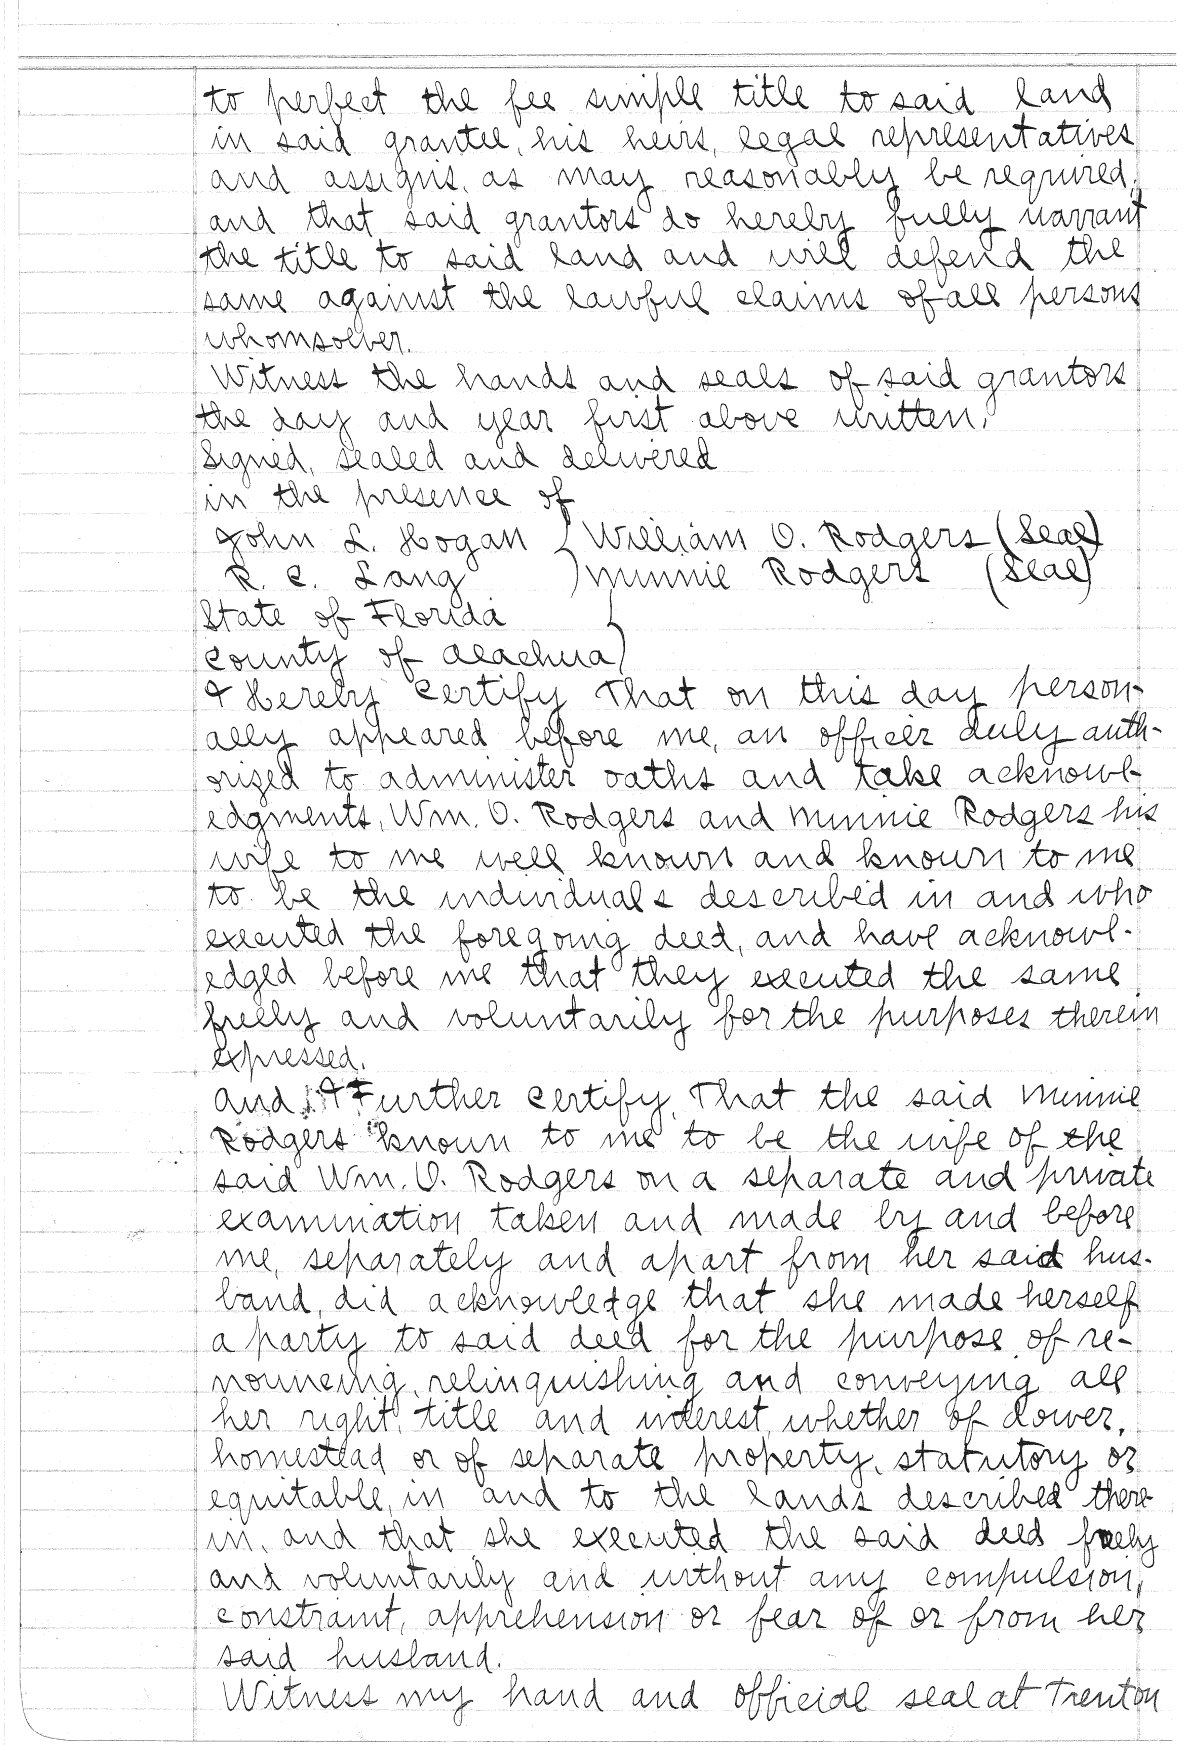 to perfect the fee simple title to said land
in said grantee, his heirs, legal representatives
and assigns, as may reasonably be required,
and that said grantors do hereby fully warrant
the title to said land and will defend the
same against the lawful claims of all persons
whomsoever.
Witness the hands and seals of said grantors
the day and year first above written.
Signed, sealed and delivered
in the presence of
John L. Hogan } William O. Rodgers (Seal)
R. C. Lang ) Minnie Rodgers (Seal)
State of Florida
County of Alachua }
I Hereby Certify That on this day person-
ally appeared before me, an officer duly auth-
orized to administer oaths and take acknowl-
edgments, Wm. O. Rodgers and Minnie Rodgers his
wife to me well known and known to me
to be the individuals described in and who
executed the foregoing deed, and have acknowl-
edged before me that they executed the same
freely and voluntarily for the purposes therein
expressed.
And, I Further Certify, That the said Minnie
Rodgers known to me to be the wife of the
said Wm. O. Rodgers on a separate and private
examination taken and made by and before
me, separately and apart from her said hus-
band, did acknowledge that she made herself
a party to said deed for the purpose of re-
nouncing, relinquishing and conveying all
her right, title and interest, whether of dower,
homestead or of separate property, statutory or
equitable, in and to the lands described there-
in, and that she executed the said deed freely
and voluntarily and without any compulsion,
constraint, apprehension or fear of or from her
said husband.
Witness my hand and official seal at Trenton